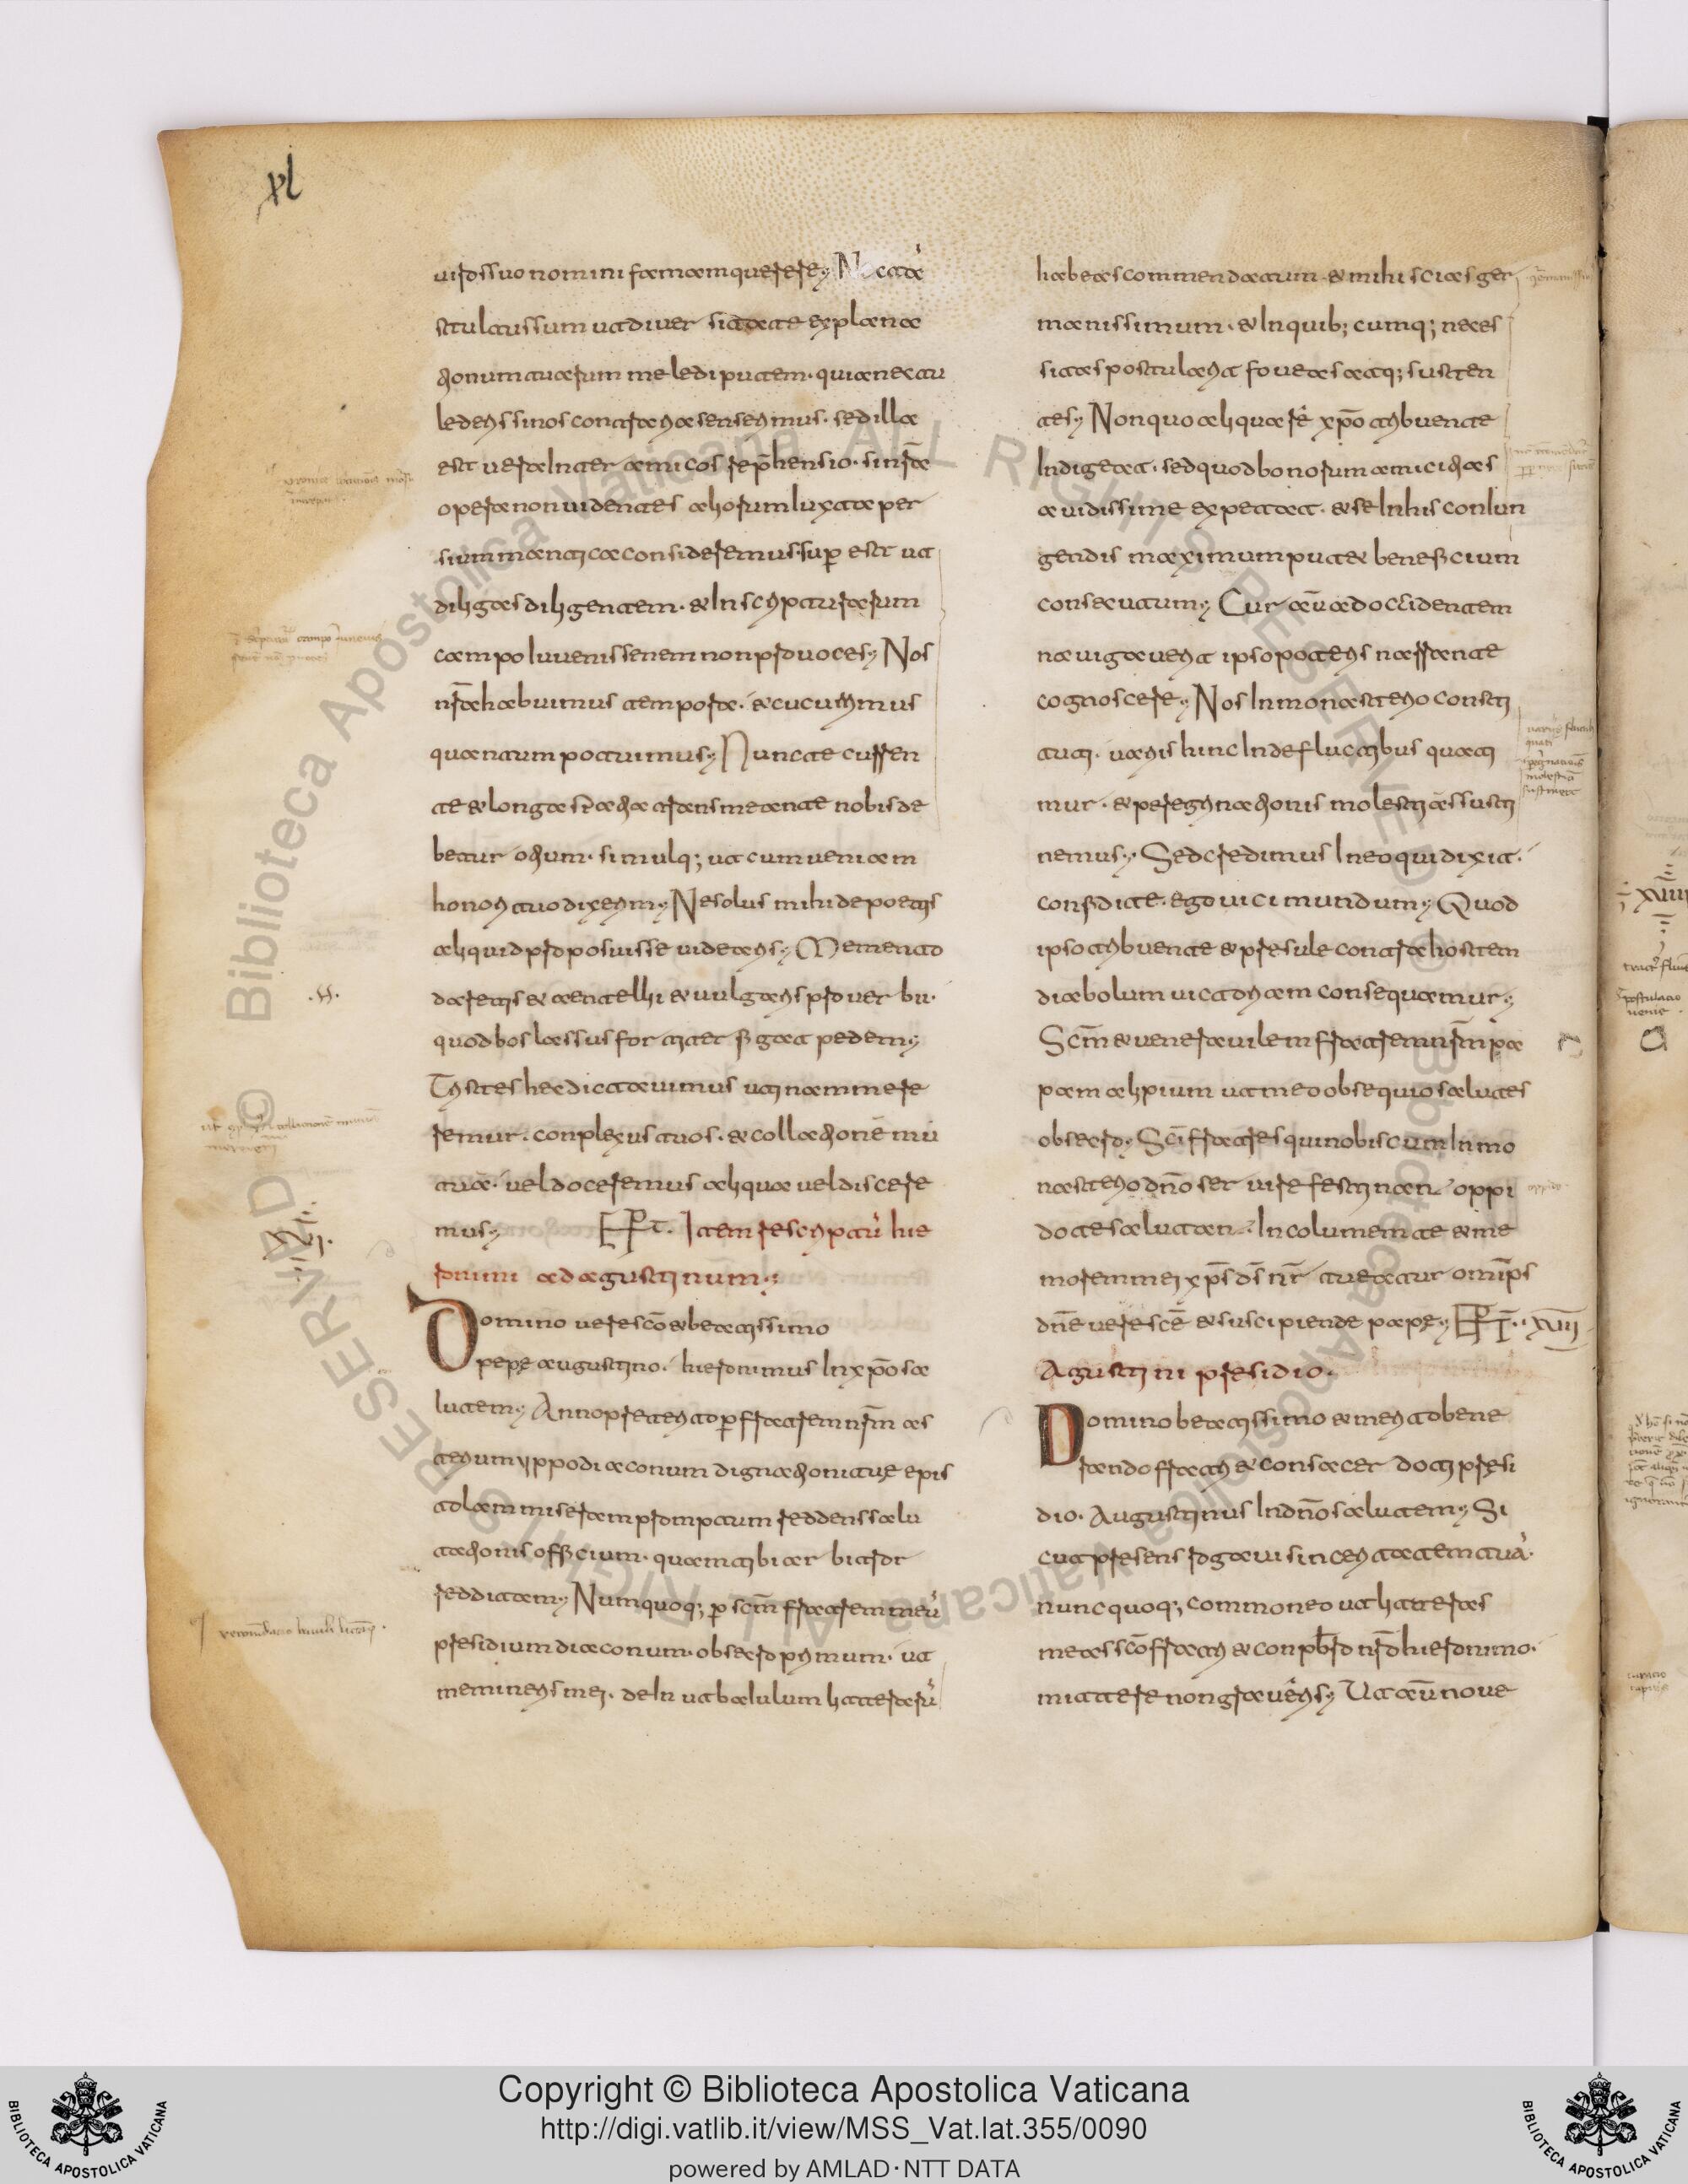 xl
uiros suo nomini famam querere; Nec ta̅
stultus sum ut diuersitate explana
tionum tuarum me ledi putem. quia nec tu
lederis si nos contraria senserimus. sed illa
est uera Inter amicos reprehensio. si nr̄a
opera non uidentes aliorum Iuxta per
sium mantica consideremus. sup̱ est ut
diligas diligentem. & In scripturarum
campo Iuuenis senem non prouoces; Nos
nr̄a habuimus tempora. & cucurrimus
quantum potuimus; Nunc te curren
te & longa spatia transmeante nobis de
betur otium. simulq; ut cum ueniam
honori tuo dixerim; Ne solus mihi de poetis
aliquid proposuisse uidearis; Memento
daretis & aentelli & uulgaris prouerbii.
quod bos lassus fortiter figat pedem;
Tristes hec dictauimus utinam mere
remur. conplexus tuos. & collatione̅ mu
tua̅. uel doceremus aliqua uel discere
mus; EPT. Item rescriptu̅ hie
ronimi ad agustinum;
XVI.
Domino uere sc̄o & beatissimo
pepę augustino. hieronimus In xp̄o sa
lutem; Anno preterito p̱ fratrem nr̄m as
terium yppodiaconum dignationi tuę epis
tolam miseram promptum reddens salu
tationis officium. quam tibi arbitror
redditam; Nunc quoq; p̱ sc̄m fratrem meu̅
presidium diaconum. obsecro primum. ut
memineris mei. dein ut baiulum litteraru̅
habeas commendatum. & mihi scias ger
manissimum. & In quib; cumq; neces
sitas postularit foueas atq; susten
tes; Non quo aliqua re̅ xp̄o tribuente
Indigeat. sed quod bonorum amicitias
auidissime expetat. & se In his coniun
gendis maximum putet beneficium
consecutum; Cur au̅ ad occidentem
nauigauerit ipso poteris narrante
cognoscere; Nos In monasterio consti
tuti. uariis hinc Inde fluctibus quati
mur. & peregrinationis molestias susti
nemus; Sed credimus In eo qui dixit.
confidite. ego uici mundum; Quod
ipso tribuente & presule contra hostem
diabolum uictoriam consequamur;
Sc̄m & uenerauilem fratrem nr̄m pa
pam alipium ut meo obsequio salutes
obsecro; Sc̄i fratres qui nobiscum In mo
nasterio dn̄o seruire festinan. oppi
do te salutan. Incolumem te & me
morem mei xp̄s d̄s nr̄ tueatur om̄ps
dn̄e uere sc̄e & suscipiende papę; EPT. XVII
Agustini presidio.
Domino beatissimo & merito bene
rando fratri & consacerdoti pręsi
dio. Augustinus In dn̄o salutem; Si
cut presens rogaui sinceritatem tua̅.
nunc quoq; commoneo ut litteras
meas sc̄o fratri & conpb̄ro nr̄o hieronimo.
mittere non graueris; Ut au̅ noue
Copyright © Biblioteca Apostolica Vaticana
http://digi.vatlib.it/view/MSS_Vat.lat.355/0090
powered by AMLAD·NTT DATA
BIBLIOTECA APOSTOLICA VATICANA
BIBLIOTECA APOSTOLICA VATICANA